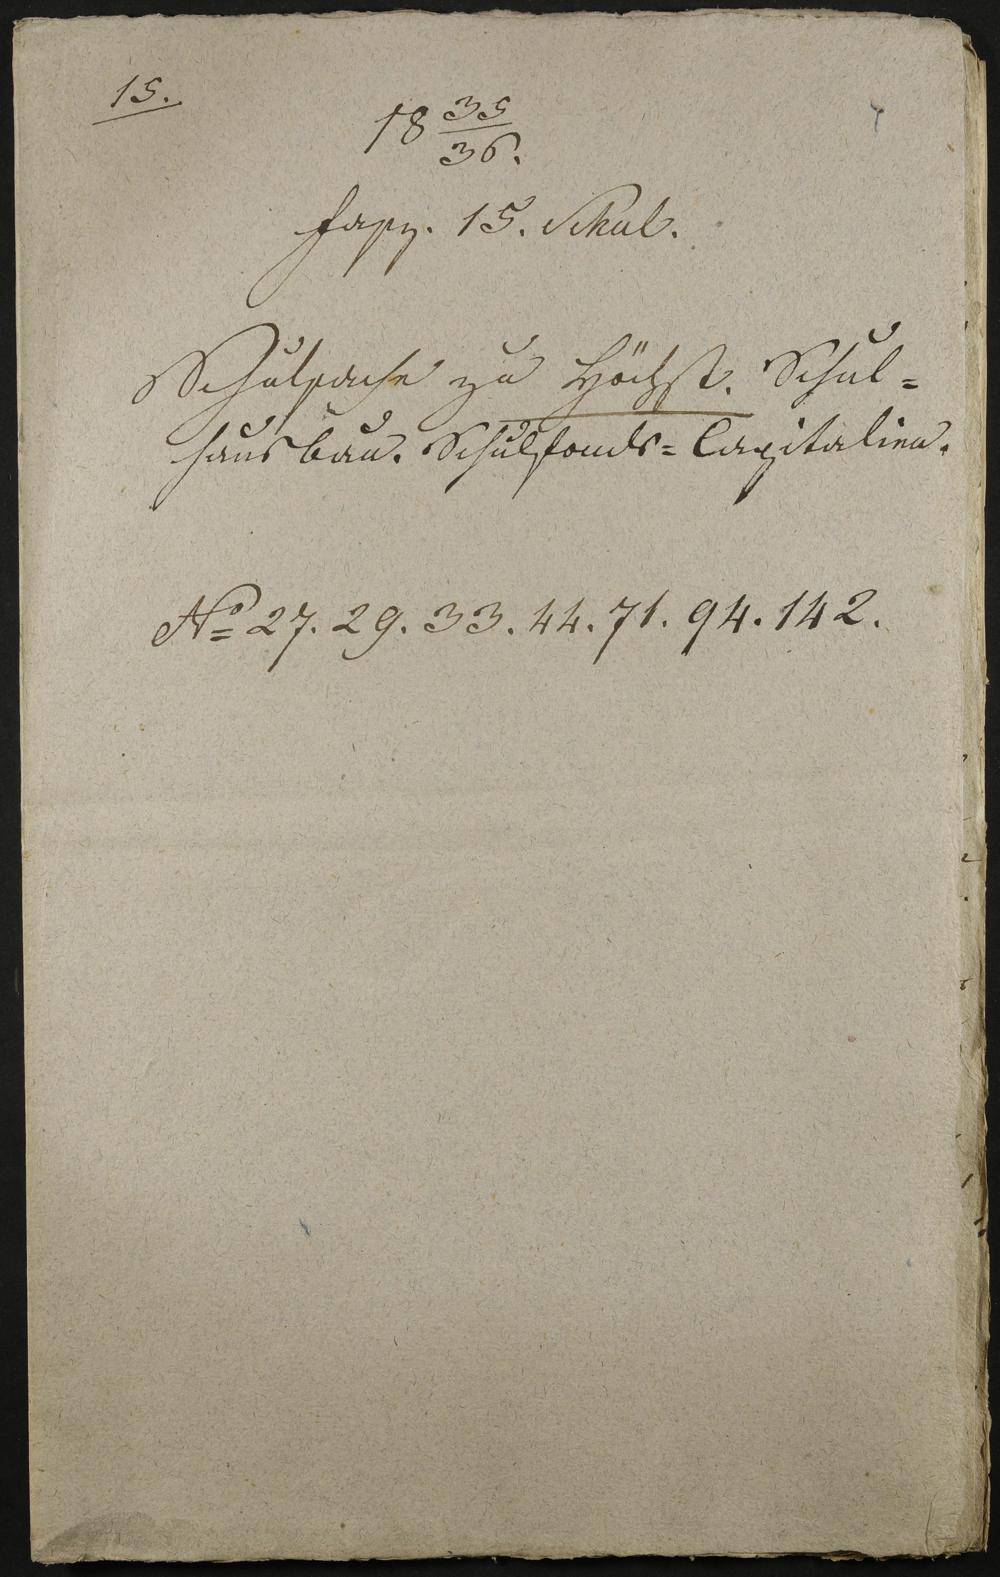 15.
18 35/36.
Fasz. 15. Schul.
Schulsache zu Höchst. Schul=
hausbau. Schulfonds=Capitalien.
No 27. 29. 33. 44. 71. 94. 142.